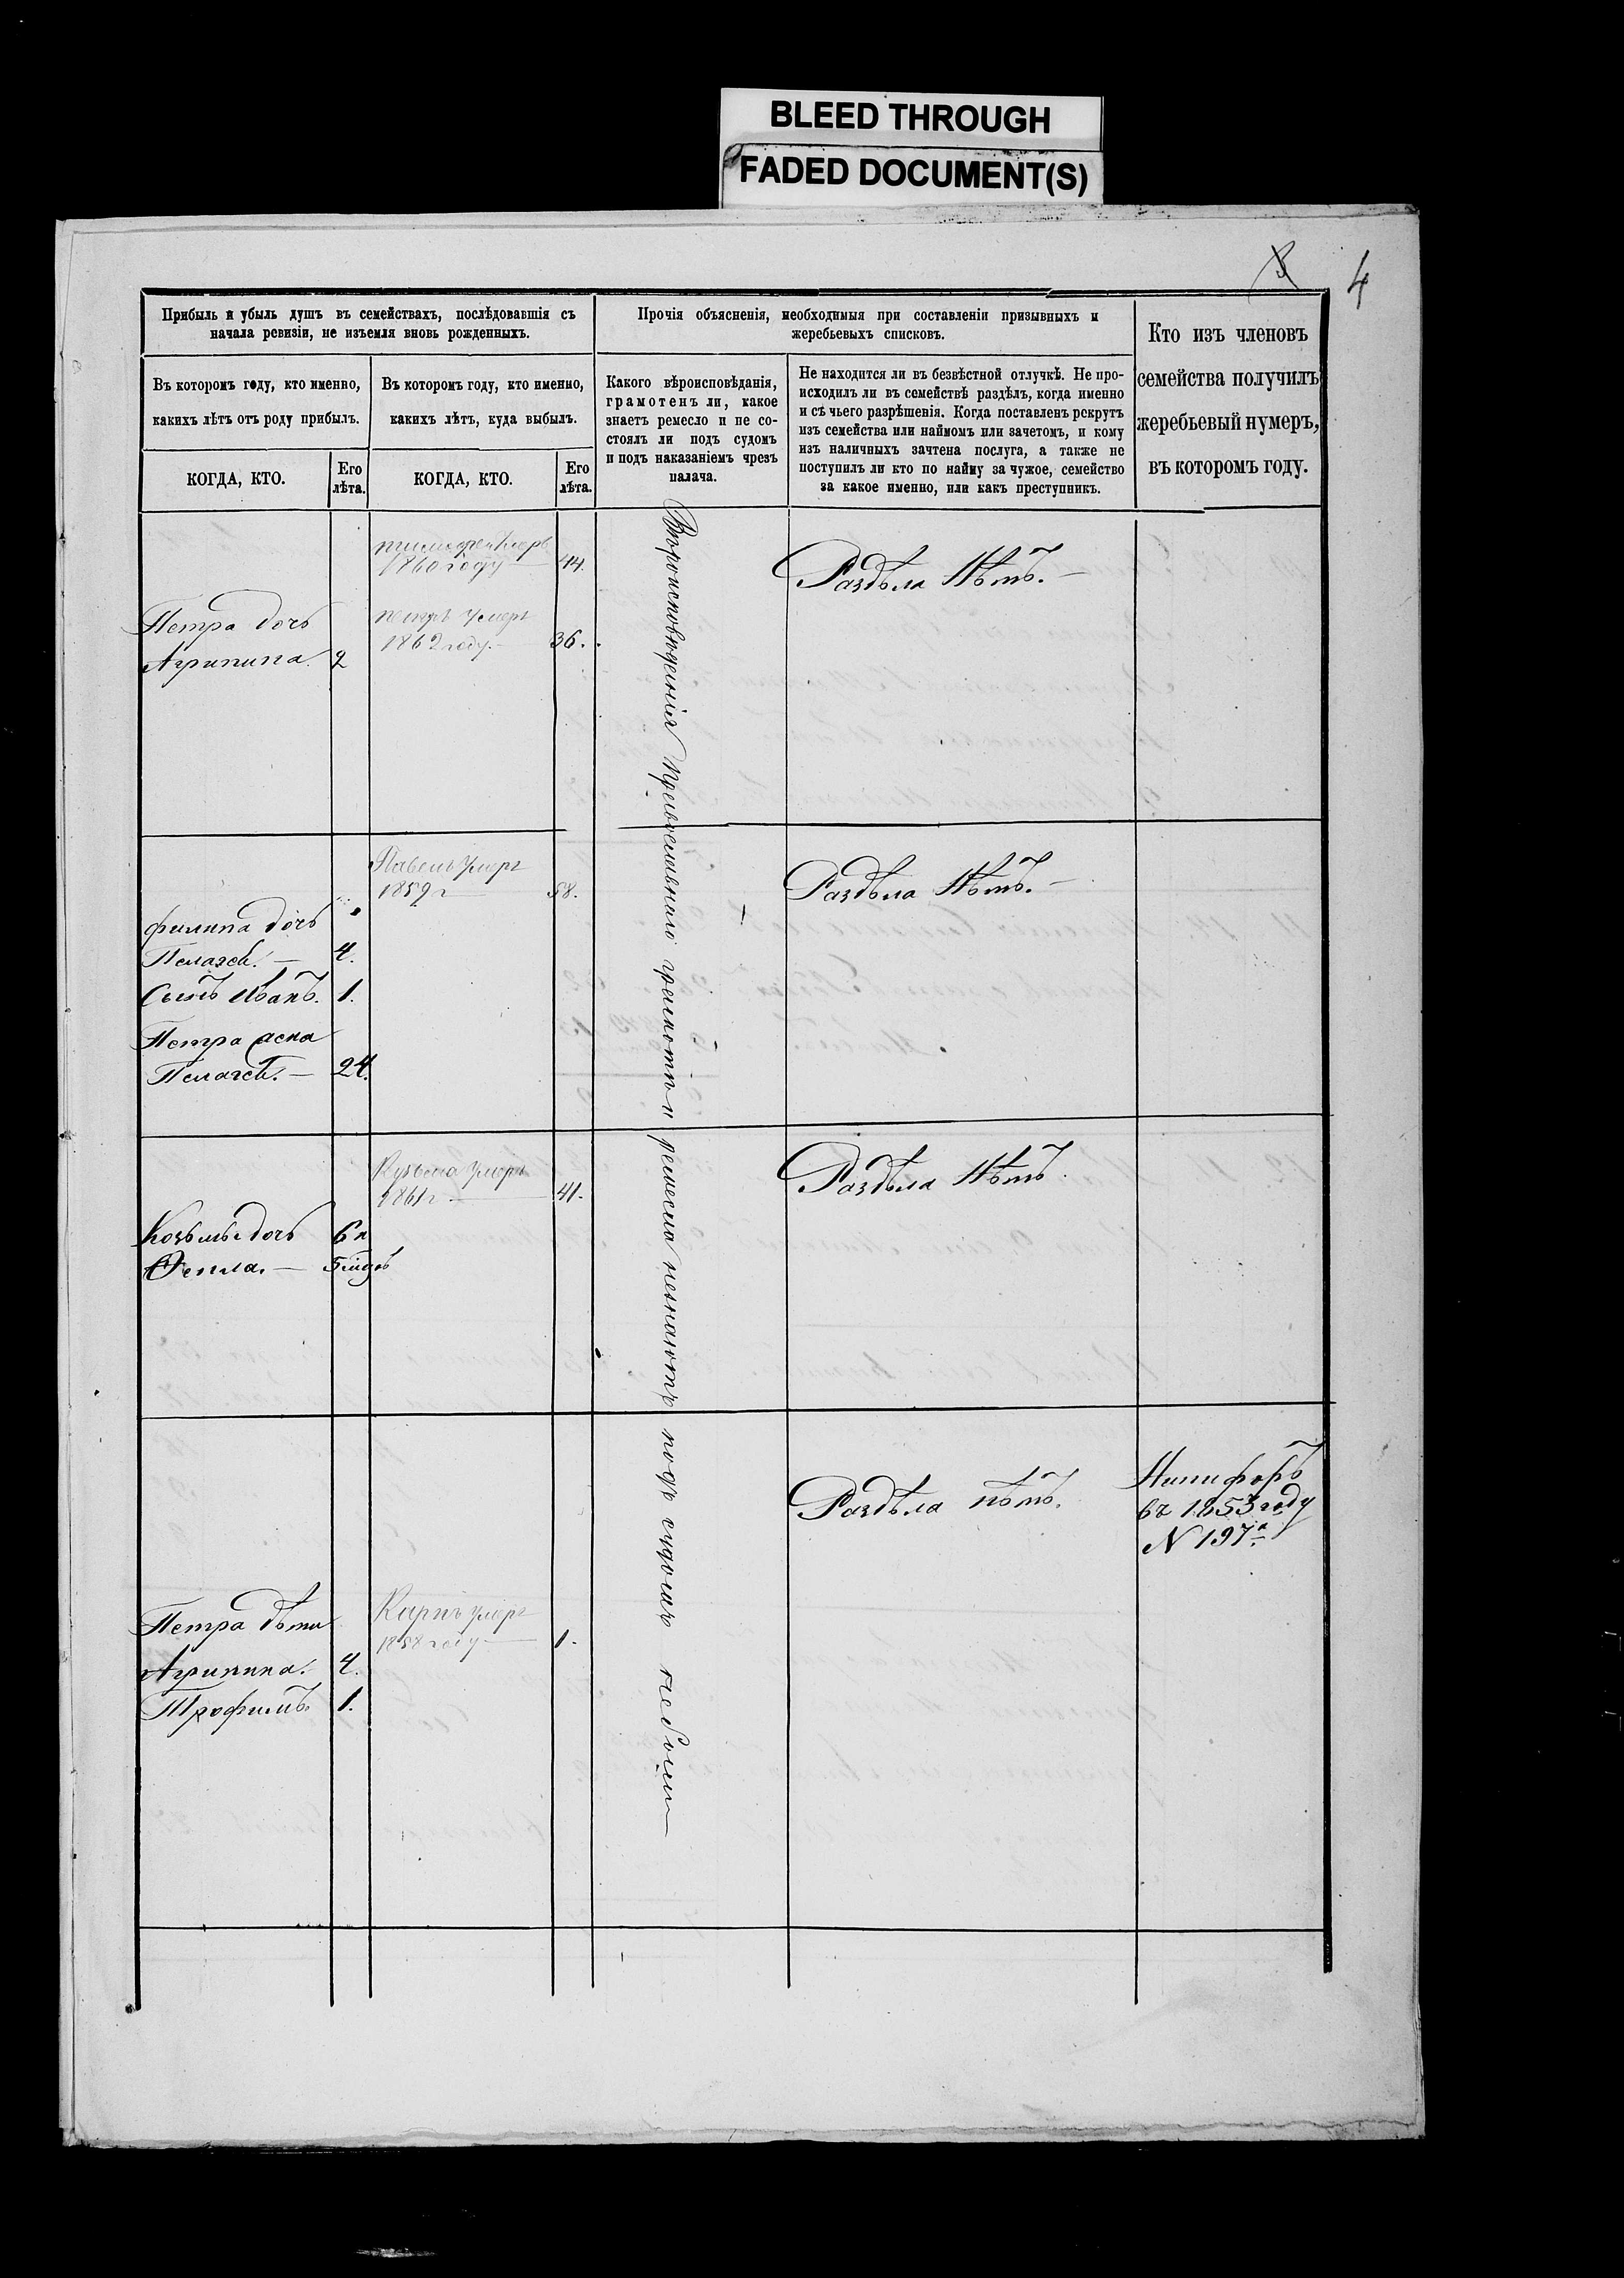 BLEED THROUGH
FADED DOCUMENT(S)
4
Прибыль и убыль душъ въ семействахъ, послѣдовавшія съ
начала ревизіи, не изъемля вновь рожденныхъ.
Прочія объясненія, необходимыя при составленіи призывныхъ и
жеребьевыхъ списковъ.
Кто изъ членовъ
семейства получилъ
жеребьевый нумеръ,
въ которомъ году.
Въ которомъ году, кто именно,
какихъ лѣтъ отъ роду прибылъ.
Въ которомъ году, кто именно,
какихъ лѣтъ, куда выбылъ.
Какого вѣроисповѣданія,
грамотенъ ли, какое
знаетъ ремесло и не со-
стоялъ ли подъ судомъ
и подъ наказаніемъ чрезъ
палача.
Не находится ли въ безвѣстной отлучкѣ. Не про-
исходилъ ли въ семействѣ раздѣлъ, когда именно
и съ чьего разрѣшенія. Когда поставленъ рекрутъ
изъ семейства или наймомъ или зачетомъ, и кому
изъ наличныхъ зачтена послуга, а также не
поступилъ ли кто по найму за чужое, семейство
за какое именно, или какъ преступникъ.
КОГДА, КТО.
Его
лѣта.
КОГДА, КТО.
Его
лѣта.
Вѣроисповѣданія православнаго грамоти и ремесла незнаютъ подъ судомъ небыли
тимофеи умеръ
1860 году 44.
Раздѣла Нѣтъ.
Петра дочь
Агрипина. 2
петръ умеръ
1862 году. 36.
Павелъ умеръ
1859 г 58.
Раздѣла Нѣтъ.
филипа дочь
Пелагеѣ. 4.
Сынъ Иванъ. 1.
Петра
Пелагеѣ. 24.
Кузьма умеръ
1861 г 41.
Раздѣла Нѣтъ.
Козьмы дочь 6 н
Фекла.
Раздѣла нѣтъ.
Никифоръ
въ 1853 году
N 197.
Петра дѣти
Агрипина. 4.
Трофимъ. 1.
Карпъ умеръ
1858 году 1.